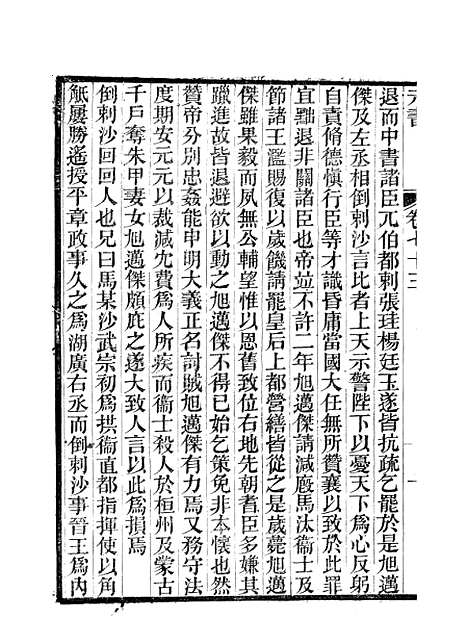 退而中書諸臣兀伯都剌張珪楊廷玉遂皆抗疏乞罷於是旭邁
傑及左丞相倒剌沙言比者上天示警陛下以憂天下爲心反躬
自責脩德愼行臣等才識昏庸當國大任無所贊襄以致於此罪
宜黜退非關諸臣也帝竝不許二年旭邁傑請減廏馬汰衞士及
節諸王濫賜復以歲饑請罷皇后上都營繕皆從之是歲薨旭邁
傑雖果毅而夙無公輔望惟以恩舊致位右地先朝耆臣多嫌其
躐進故皆退避欲以動之旭邁傑不得已始乞策免非本懷也然
贊帝分別忠姦能申明大義正名討賊旭邁傑有力焉又務守法
度期安元元以裁減宂費爲人所疾而衞士殺人於桓州及蒙古
千戶奪朱甲妻女旭邁傑頗庇之遂大致人言以此爲損焉
倒剌沙回回人也兄曰馬某沙武宗初爲拱衞直都指揮使以角
觝屢勝遙授平章政事久之爲湖廣右丞而倒剌沙事晉王爲內
卷七十三
一